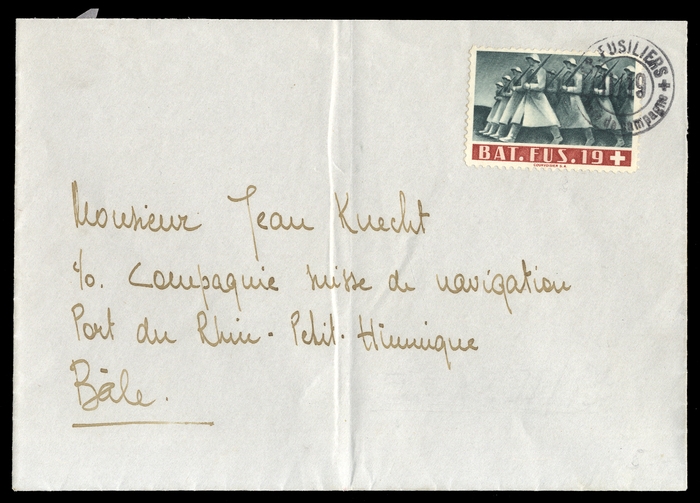 FUSILIERS
19
de campagne
BAT. FUS. 19
COURVOISIER S.A.
Monsieur Jean Knecht
c/o. Compagnie suisse de navigation
Port du Rhin - Petit-Hunnigue
Bâle.